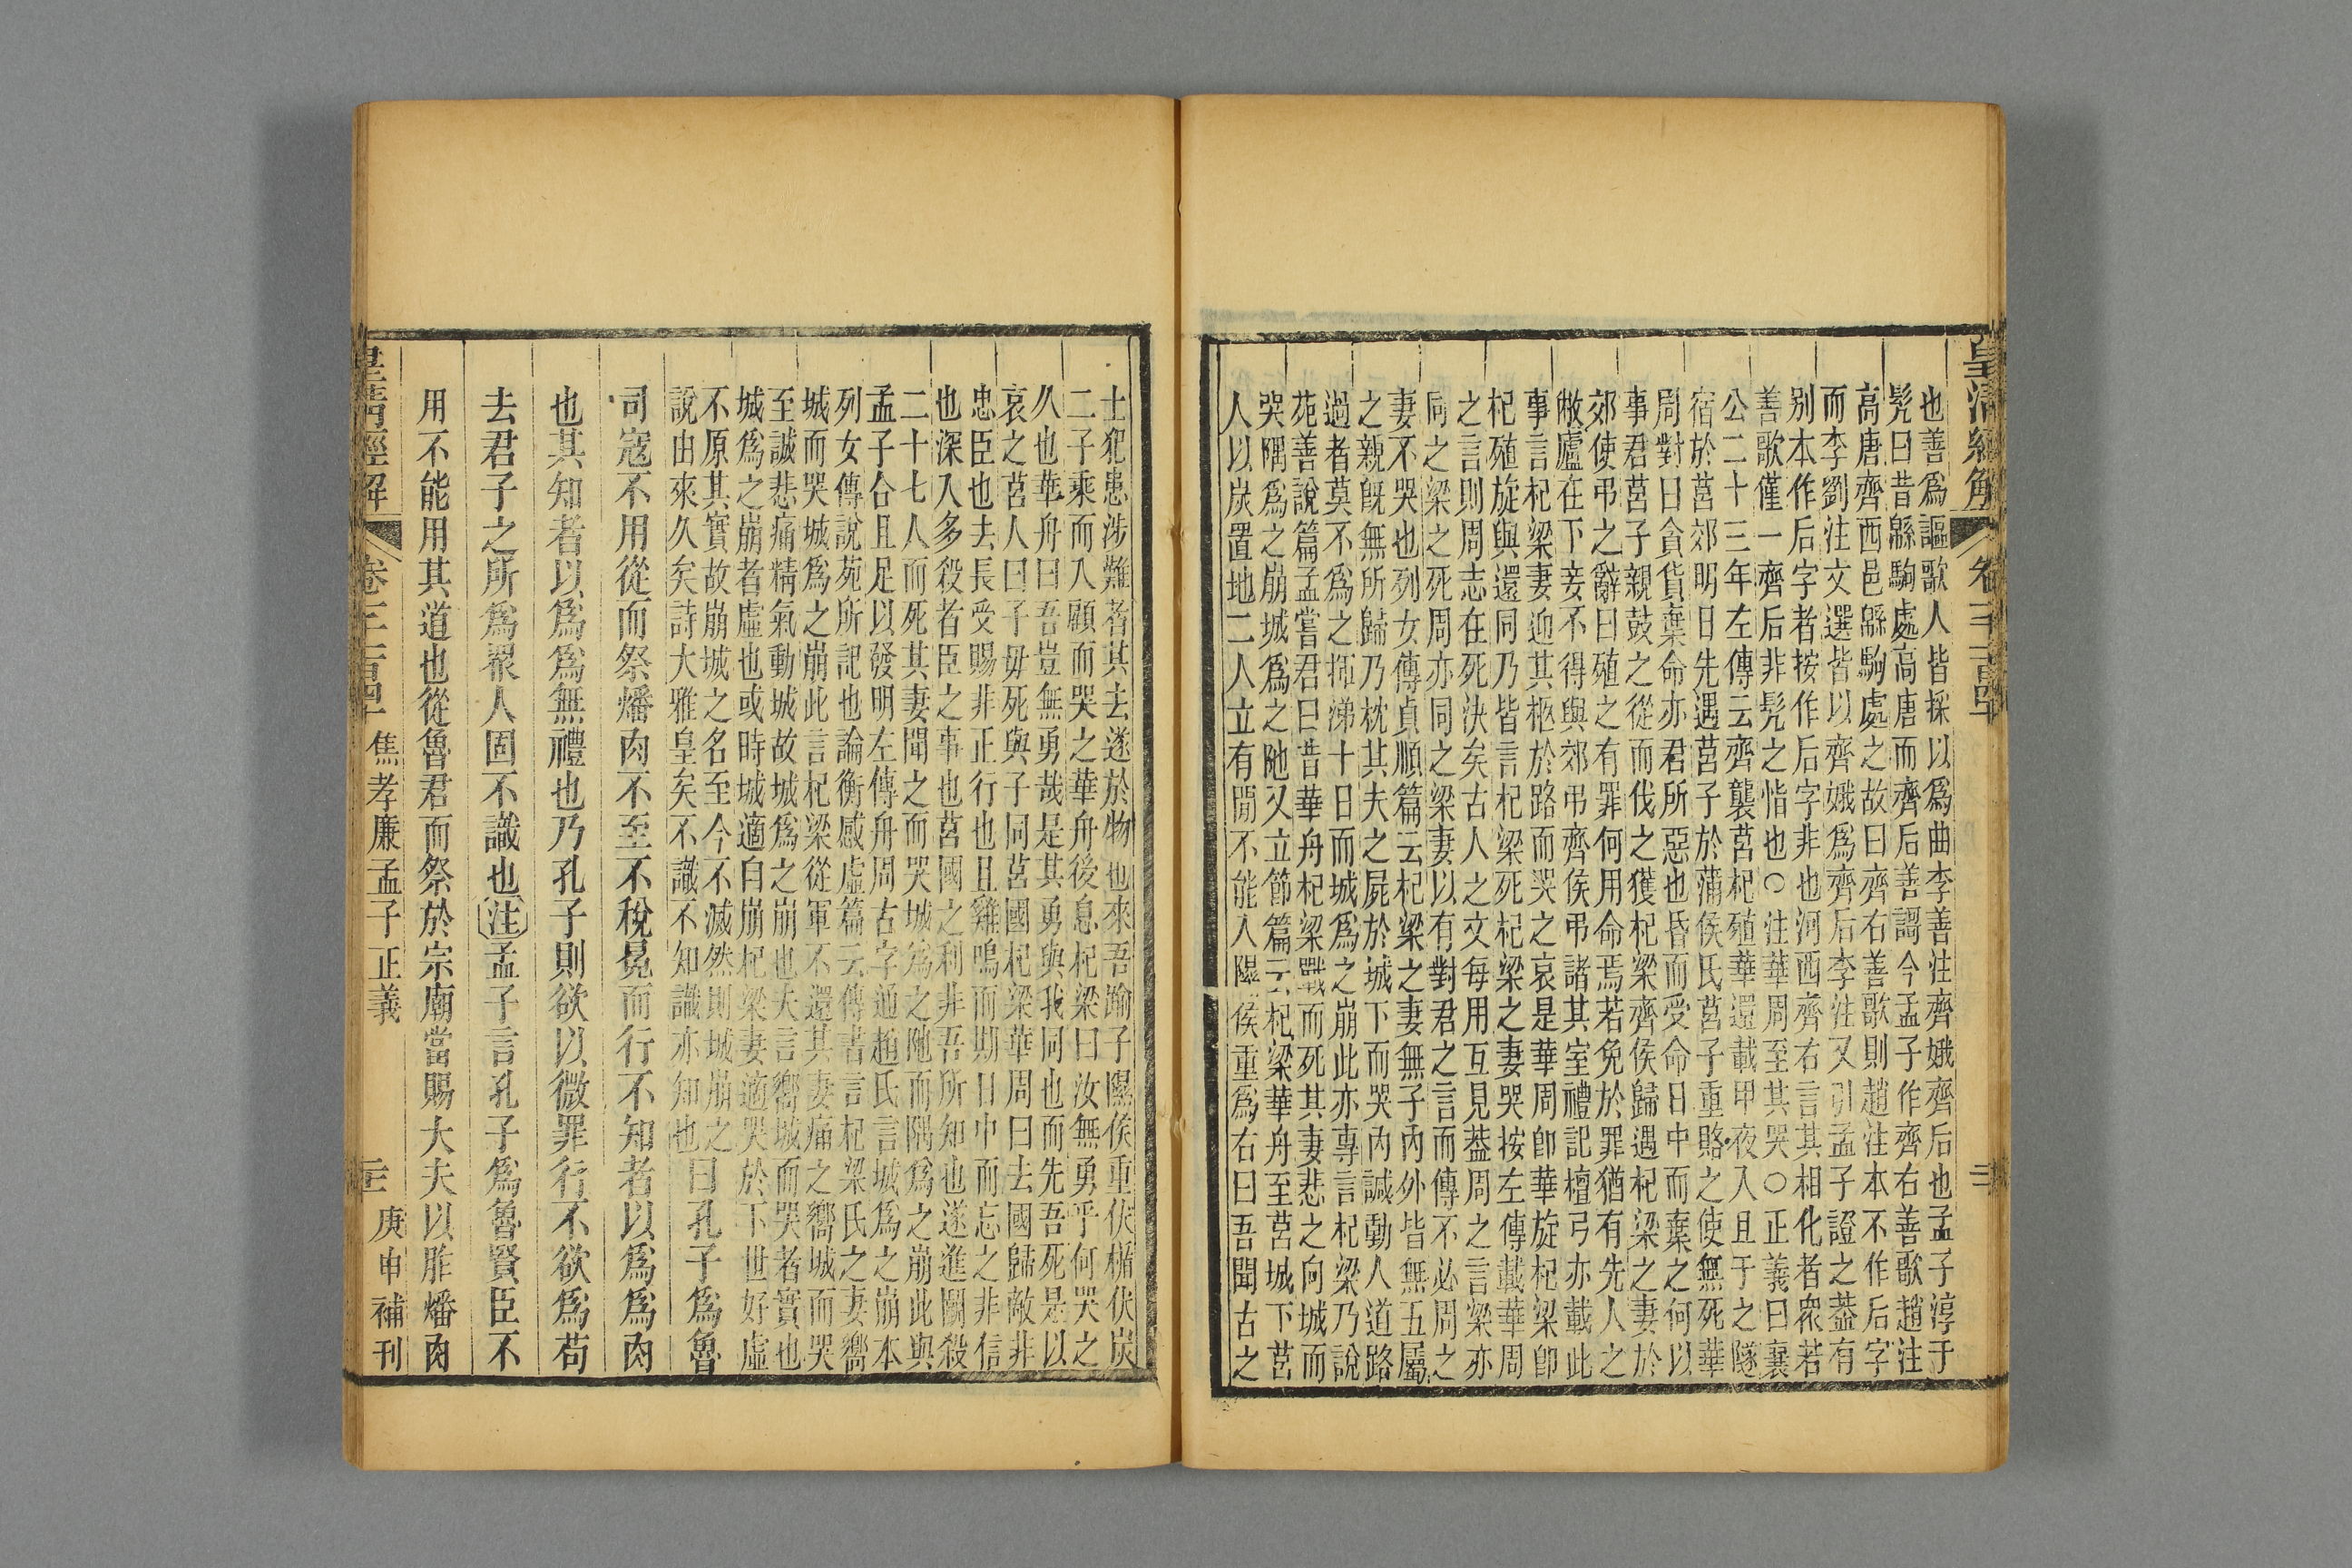 皇清經解
卷千一百四十
二
也善爲謳歌人皆採以爲曲李善注齊娥齊后也孟子淳于
髡曰昔緜駒處高唐而齊后善謌今孟子作齊右善歌趙注
高唐齊西邑緜駒處之故曰齊右善歌則趙注本不作后字
而李劉注文選皆以齊娥爲齊后李注又引孟子證之葢有
別本作后字者按作后字非也河西齊右言其相化者衆若
善歌僅一齊后非髡之恉也○注華周至其哭○正義曰襄
公二十三年左傳云齊襲莒杞殖華還載甲夜入且于之隧
宿於莒郊明日先遇莒子於蒲侯氏莒子重賂之使無死華
周對曰貪貨棄命亦君所惡也昏而受命日中而棄之何以
事君莒子親鼓之從而伐之獲杞梁齊侯歸遇杞梁之妻於
郊使弔之辭曰殖之有罪何用命焉若免於罪猶有先人之
敝廬在下妾不得與郊弔齊侯弔諸其室禮記檀弓亦載此
事言杞梁妻迎其柩於路而哭之哀是華周卽華旋杞梁卽
杞殖旋與還同乃皆言杞梁死杞梁之妻哭按左傳載華周
之言則周志在死決矣古人之文每用互見葢周之言梁亦
同之梁之死周亦同之梁妻以有對君之言而傳不必周之
妻不哭也列女傳貞順篇云杞梁之妻無子內外皆無五屬
之親旣無所歸乃枕其夫之屍於城下而哭內諴動人道路
過者莫不爲之揮涕十日而城爲之崩此亦專言杞梁乃說
苑善說篇孟嘗君曰昔華舟杞梁戰而死其妻悲之向城而
哭隅爲之崩城爲之阤又立節篇云杞梁華舟至莒城下莒
人以炭置地二人立有閒不能入隰侯重爲右曰吾聞古之
士犯患涉難者其去遂於物也來吾踰子隰侯重仗楯伏炭
二子乘而入顧而哭之華舟後息杞梁曰汝無勇乎何哭之
久也華舟曰吾豈無勇哉是其勇與我同也而先吾死是以
哀之莒人曰子毋死與子同莒國杞梁華周曰去國歸敵非
忠臣也去長受賜非正行也且雞鳴而期日中而忘之非信
也深入多殺者臣之事也莒國之利非吾所知也遂進鬭殺
二十七人而死其妻聞之而哭城爲之阤而隅爲之崩此與
孟子合且足以發明左傳舟周古字通趙氏言城爲之崩本
列女傳說苑所記也論衡感虛篇云傳書言杞梁氏之妻嚮
城而哭城爲之崩此言杞梁從軍不還其妻痛之嚮城而哭
至誠悲痛精氣動城故城爲之崩也夫言嚮城而哭者實也
城爲之崩者虛也或時城適自崩杞梁妻適哭於下世好虛
不原其實故崩城之名至今不滅然則城崩之
說由來久矣詩大雅皇矣不識不知識亦知也
曰孔子爲魯
司寇不用從而祭燔肉不至不稅冕而行不知者以爲爲肉
也其知者以爲爲無禮也乃孔子則欲以微罪行不欲爲苟
去君子之所爲眾人固不識也注孟子言孔子爲魯賢臣不
用不能用其道也從魯君而祭於宗廟當賜大夫以胙燔肉
皇清經解
卷千一百四十
焦孝廉孟子正義
三
庚申補刊